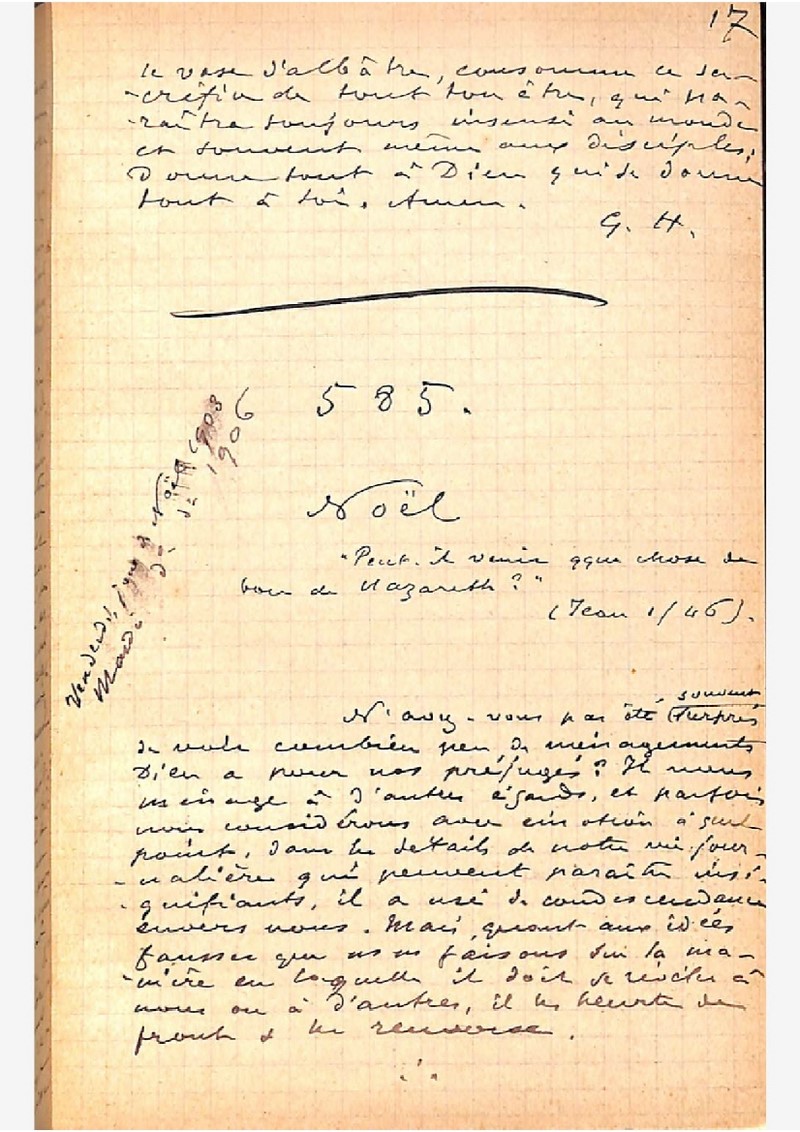 17
le vase d'albâtre, consomme ce sa-
-crifice de tout ton être, qui pa-
-raîtra toujours insensé au monde
et souvent même aux disciples;
Donne tout à Dieu qui se donne
tout à toi. Amen.
G. H.
585.
Noël
Vendredi, jour de Noël 1903
Mardi 1906
"Peut-il venir qque chose de
bon de Nazareth?"
(Jean 1/46).
souvent
N'avez-vous pas été surpris
de voir combien peu de ménagements
Dieu a pour nos préjugés? Il nous
ménage à d'autres égards, et parfois
nous considérons avec émotion à quel
point, dans les détails de notre vie jour-
-nalière qui peuvent paraître insi-
-gnifiants, il a usé de condescendance
envers nous. Mais quant aux idées
fausses que nous faisons sur la ma-
-nière en laquelle il doit se révéler à
nous ou à d'autres, il les heurte de
front & les renverse.